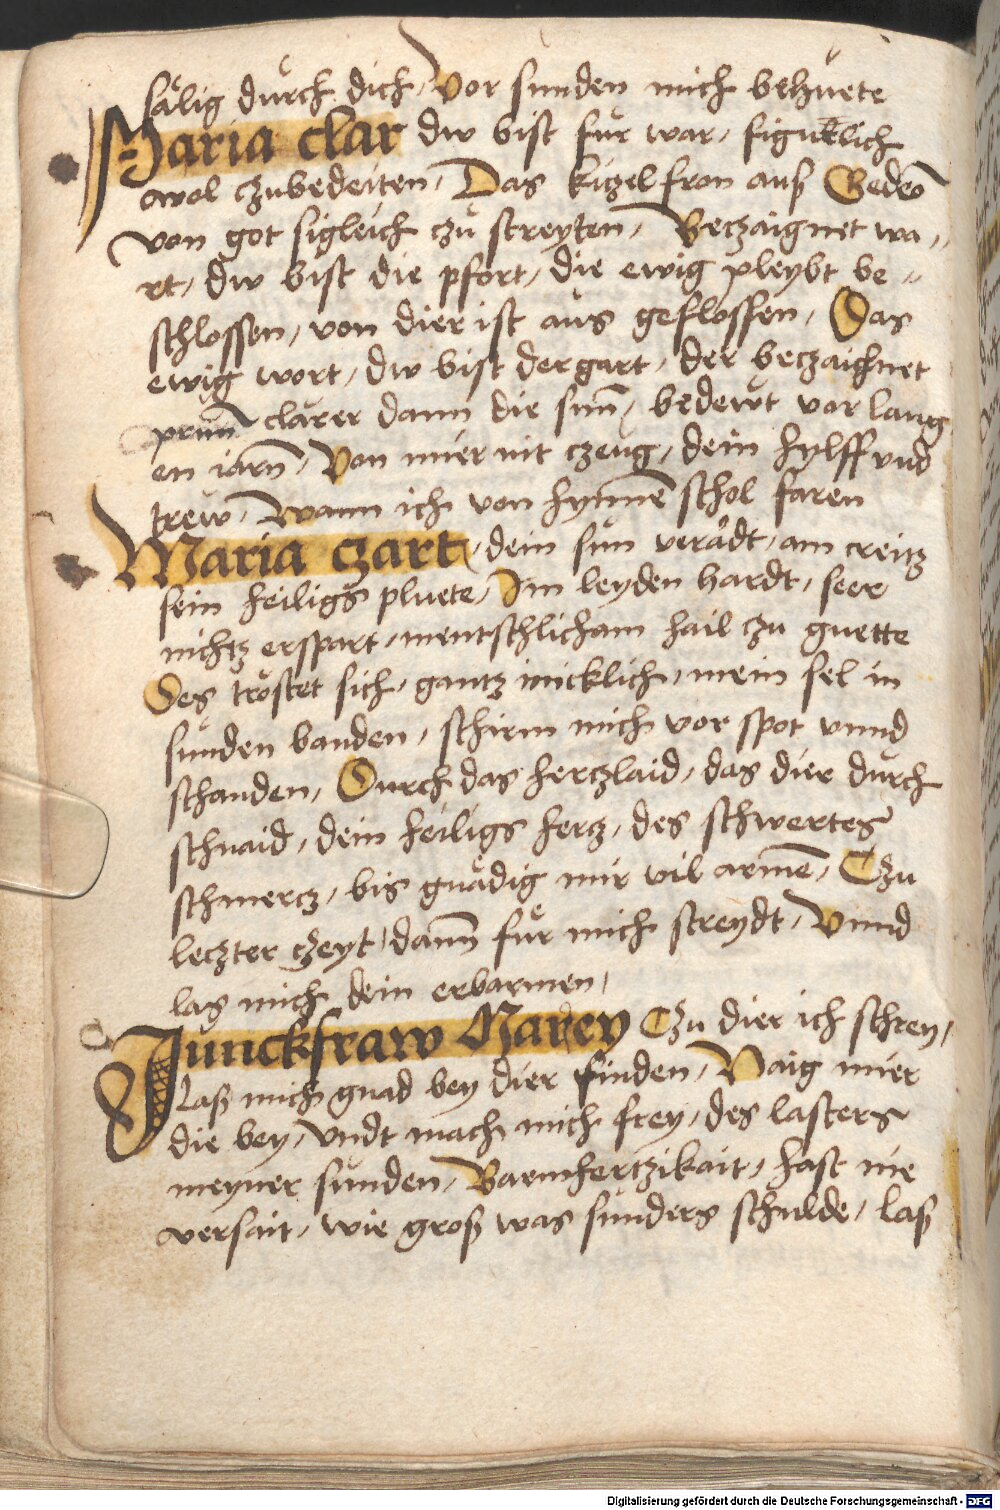 sälig durch dich, Vor sunden mich behuete
Maria clar dw bist fur war, figurlich
wol czubedeiten, Das kitzel fron auß Gedeō
von got sigleich czu streyten, Beczaignet wa„
rt, dw bist die pfort, die ewig pleybt be„
schlossen, von dier ist aus geflossen, Das
ewig wort, dw bist der gart, der beczaichnet
prūn clarer dann die sun̄, bedewt vor lang
en iarn̄, Von mier nit czeug, dein hylff vnd
trew, Wann ich von hynnē schol faren
Maria czart, dein sun verådt, am creitz
sein heiligs pluete, Im leyden hardt, seer
nichtz erspart, mentschlicham hail czu guette
Des tröstet sich, gantz inicklich, mein sel in
sunden banden, schirm mich vor spot vnnd
schanden, Durch das hertzlaid, das dier durch
schnaid, dein heiligs hertz, des schwertes
schmercz, bis gnådig mir vil armē, Czu
leczter czeyt, dann̄ für mich streydt, Vnnd
las mich dein erbarmen,
Junckfraw Marey Czu dier ich schrey,
Laß mich gnad bey dier finden, Naig mier
die bey, Vndt mach mich frey, des lasters
meyner sunden, Barmhertzikait, hast nie
versait, wie groß was sunders schulde, laß
Digitalisierung gefördert durch die Deutsche Forschungsgemeinschaft - DFG